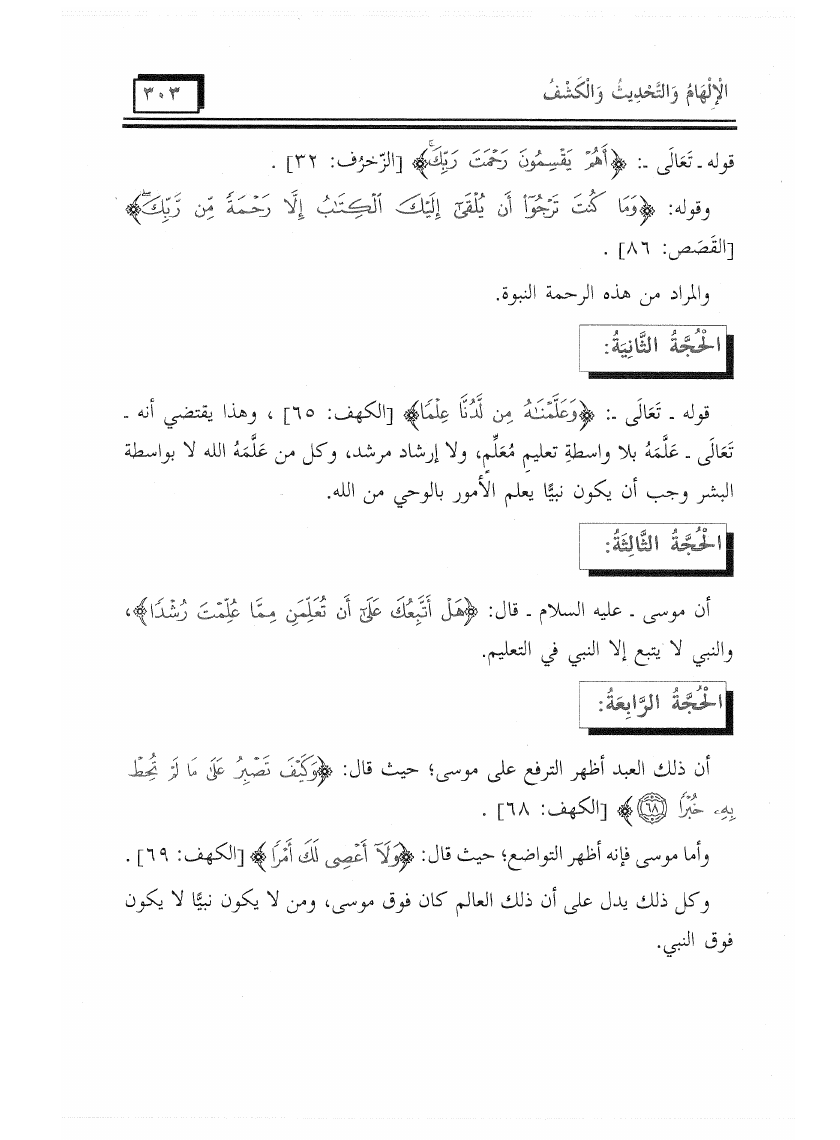 الْإِلْهَامُ وَالتَّحْدِيثُ وَالْكَشْفُ ٣٠٣
قوله ـ تَعَالَى ـ: ﴿أَهُمْ يَقْسِمُونَ رَحْمَتَ رَبِّكَۚ﴾ [الزّخرُف: ٣٢] .
وقوله: ﴿وَمَا كُنتَ تَرْجُوٓا۟ أَن يُلْقَىٰٓ إِلَيْكَ ٱلْكِتَـٰبُ إِلَّا رَحْمَةً مِّن رَّبِّكَۖ﴾
[القَصَص: ٨٦] .
والمراد من هذه الرحمة النبوة.
الْحُجَّةُ الثَّانِيَةُ:
قوله ـ تَعَالَى ـ: ﴿وَعَلَّمْنَـٰهُ مِن لَّدُنَّا عِلْمًا﴾ [الكهف: ٦٥] ، وهذا يقتضي أنه ـ
تَعَالَى ـ عَلَّمَهُ بلا واسطةِ تعليمِ مُعَلِّمٍ، ولا إرشاد مرشد، وكل من عَلَّمَهُ الله لا بواسطة
البشر وجب أن يكون نبيًّا يعلم الأمور بالوحي من الله.
الْحُجَّةُ الثَّالِثَةُ:
أن موسى ـ عليه السلام ـ قال: ﴿هَلْ أَتَّبِعُكَ عَلَىٰٓ أَن تُعَلِّمَنِ مِمَّا عُلِّمْتَ رُشْدًا﴾،
والنبي لا يتبع إلا النبي في التعليم.
الْحُجَّةُ الرَّابِعَةُ:
أن ذلك العبد أظهر الترفع على موسى؛ حيث قال: ﴿وَكَيْفَ تَصْبِرُ عَلَىٰ مَا لَمْ تُحِطْ
بِهِۦ خُبْرًا ٦٨﴾ [الكهف: ٦٨] .
وأما موسى فإنه أظهر التواضع؛ حيث قال: ﴿وَلَآ أَعْصِى لَكَ أَمْرًا﴾ [الكهف: ٦٩] .
وكل ذلك يدل على أن ذلك العالم كان فوق موسى، ومن لا يكون نبيًّا لا يكون
فوق النبي.